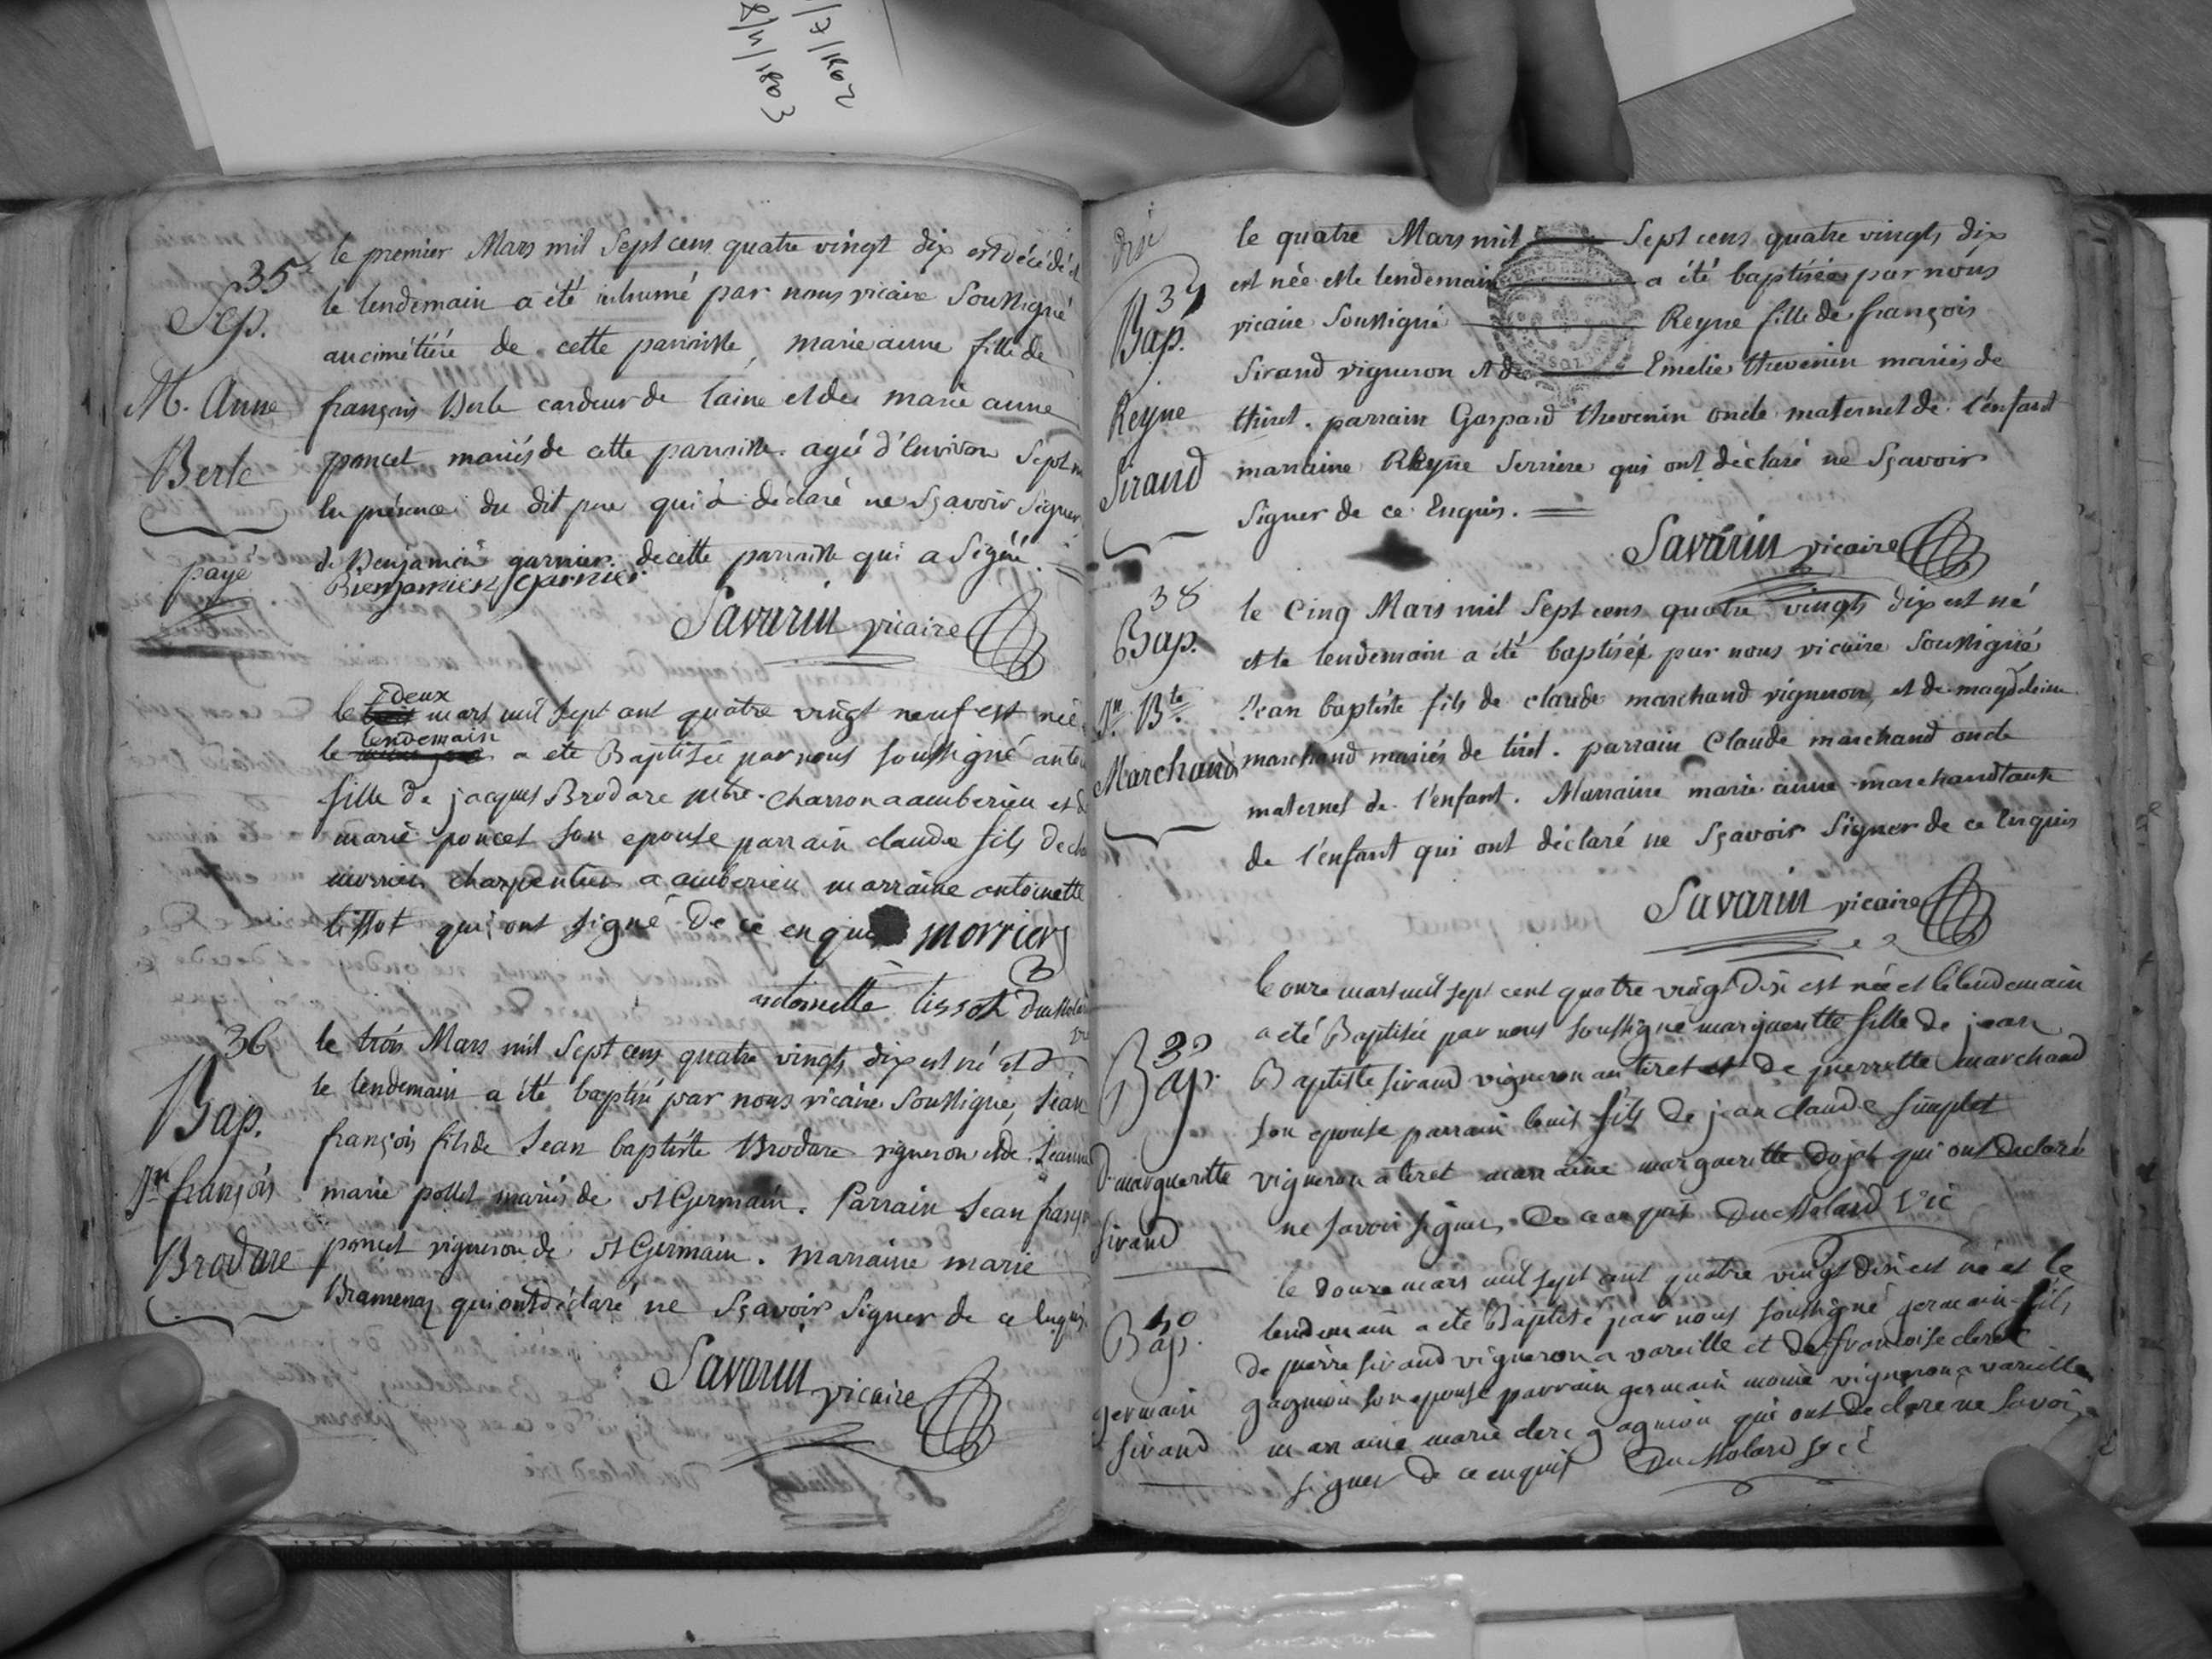 8/11/1803
/7/1802
35
Sep.
M. Anne
Berle
payé
le premier Mars mil Sept cens quatre vingt dix est décédé et
le lendemain a été inhumé par nous vicaire Soussigné
au cimétiére de cette parroisse, marie anne fille de
françois Berle cardeur de laine et de marie anne
poncet mariés de cette parroisse. agée d'Environ Sept
En présence du dit pere qui a déclaré ne Sçavoir Signer
de Benjamin garnier de cette parroisse qui a Signé.
Bienjamien garnier
Savarin vicaire
le deux mars mil sept cent quatre vingt neuf est née
le lendemain a eté Baptisée par nous soussigné
fille de jacques Brodare mtre. charron a amberieu et de
marie poncet son epouse parrain claude fils de
morrier charpentier a amberieu marraine antoinette
tissot qui ont signé de ce enquis morrier
antoinette tissot
36
Bap.
Jn françois
Brodare
le trois Mars mil Sept cens quatre vingts dix est né et
le lendemain a été baptisé par nous vicaire Soussigné, Jean
françois fils de Jean baptiste Brodare vigneron et de Jeanne
marie pollet mariés de St Germain. Parrain Jean françois
poncet vigneron de St Germain. marraine marie
Bramenaz qui ont déclaré ne Sçavoir Signer de ce Enquis
Savarin vicaire
37
Bap.
Reyne
Sirand
le quatre Mars mil Sept cens quatre vingts dix
est née et le lendemain a été baptisée par nous
vicaire Soussigné Reyne fille de françois
Sirand vigneron et de Emelie thevenin mariés de
thiret. parrain Gaspard thevenin oncle maternel de l'enfant
marraine Reyne Serriere qui ont déclaré ne Sçavoir
Signer de ce Enquis.
Savarin vicaire
38
Bap.
Jn. Bte.
Marchand
le Cinq Mars mil Sept cens quatre vingts dix est né
et le lendemain a été baptisé par nous vicaire Soussigné
Jean baptiste fils de claude marchand vigneron, et de magdeleine
marchand mariés de tiret. parrain Claude marchand oncle
maternel de l'enfant. Marraine marie anne marchand tante
de l'enfant qui ont déclaré ne Sçavoir Signer de ce Enquis
Savarin vicaire
39
Bap.
marguerite
sirand
le onze mars mil sept cent quatre vingt dix est née et le lendemain
a eté Baptisée par nous soussigné marguerite fille de jean
Baptiste sirand vigneron au tiret et de pierrette marchand
son epouse parrain louis fils de jean claude simplet
vigneron a tiret marraine marguerite dojat qui ont declaré
ne savoir signer de ce enquis Du Molard Vic
40
Bap.
germain
sirand
le douze mars mil sept cent quatre vingt dix est né et le
lendemain a eté Baptisé par nous soussigné germain fils
de pierre sirand vigneron a vareille et de francoise clerc
gagnion son epouse parrain germain moine vigneron a vareille
marraine marie clerc gagnion qui ont declaré ne savoir
signer de ce enquis Du Molard vic